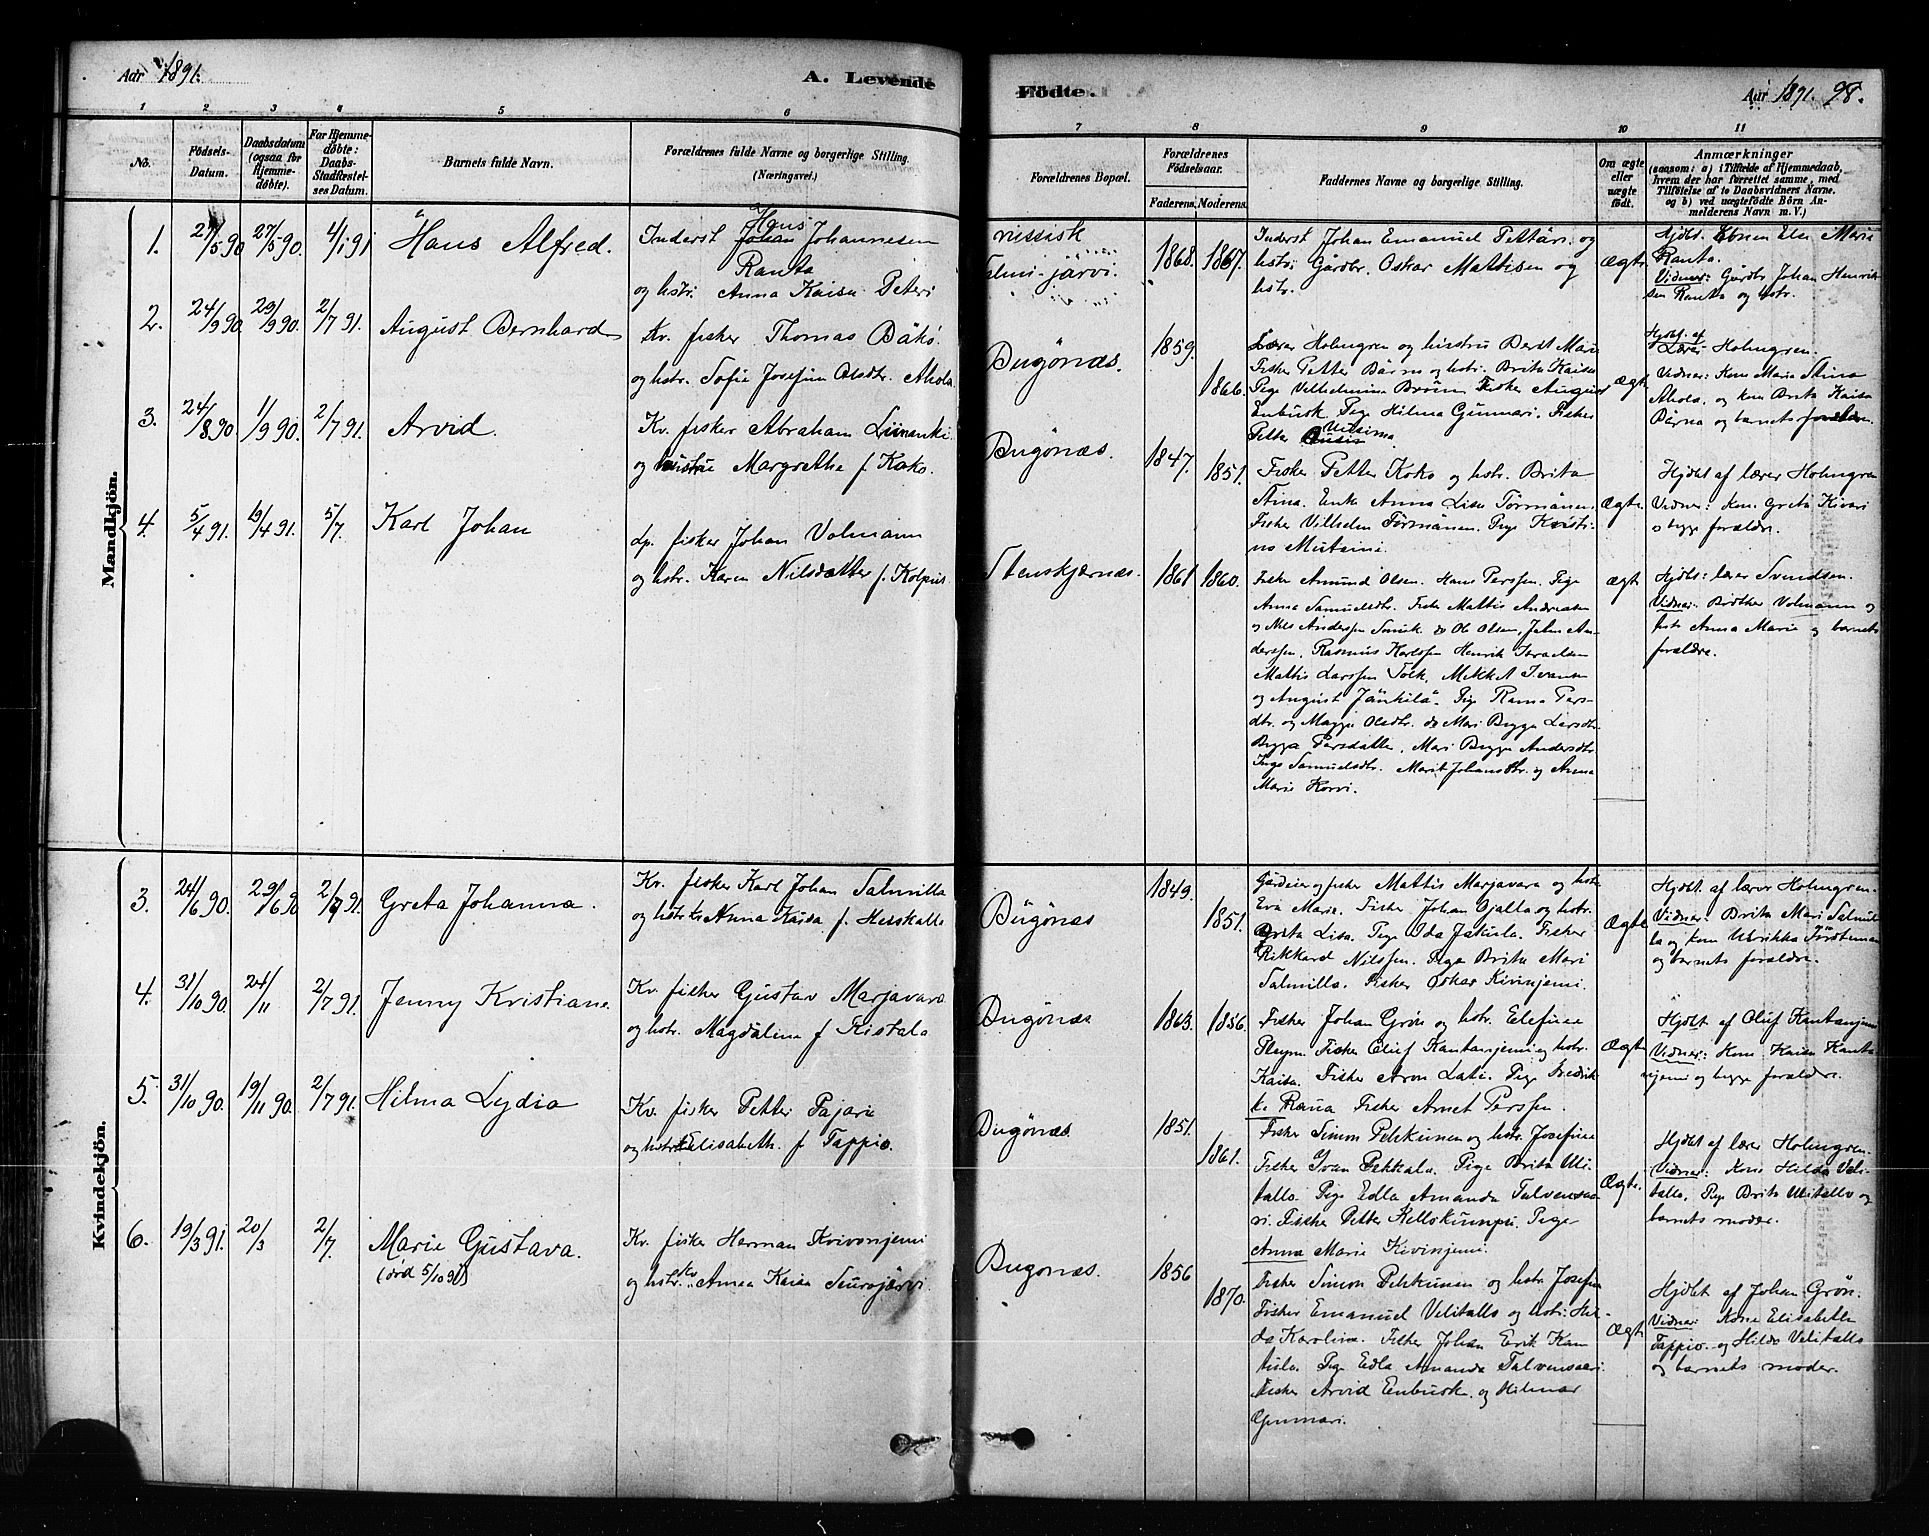 Aar 1891.
A. Levende
Födte.
Aar 1891. 98.
1 2 3 4 5 6 7 8 9 10 11
No.
Födsels-
Datum.
Daabsdatum
(ogsaa for
Hjemme-
döbte).
For Hjemme-
döbte:
Daabs-
Stadfæstel-
ses Datum.
Barnets fulde Navn.
Forældrenes fulde Navne og borgerlige Stilling.
(Næringsvei.)
Forældrenes Bopæl.
Forældrenes
Födselsaar.
Faderens. Moderens.
Faddernes Navne og borgerlige Stilling.
Om ægte
eller
uægte
födt.
Anmærkninger
(saasom: a) i Tilfælde af Hjemmedaab,
hvem der har forrettet samme, med
Tilföielse af to Daabsvidners Navne.
og b) ved uægtefödte Börn An-
melderens Navn m. V.)
Mandkjön.
1. 27/5 90 27/5 90. 4/1 91 Hans Alfred.
Inderst Johan Hans Johannesen
Ranta
og hstr. Anna Kaisa Peteri
russisk
Salmi-järvi.
1868. 1867.
Inderst Johan Emanuel Pettäri og
hstr. Gårdbr. Oskar Mattisen og
hstr.
Ægte
Hjdbt. Konen Else Marie
Ranta.
Vidner: Gårdbr. Johan Henrik-
sen Ranta og hstr.
2. 24/9 90. 29/9 90. 2/7 91. August Bernhard
Kv. fisker Thomas Bäkö.
og hstr. Sofie Josefine Olsdtr. Ahola
Bugönæs.
1859. 1866.
Lærer Holmgren og hustru Berit Marie
Fisker Petter Bärna og hstr. Brita Kaisa
Pige Vilhelmine Bruun Fisker August
Enbusk Pige Hilma Gunnari. Fisker
Petter
Ægte
Hjdbt. af
Lærer Holmgren.
Vidner: Kone Maria Stina
Ahola, og kone Brita Kaisa
Bärna og barnets forældre.
3. 24/8 90 1/9 90. 2/7 91. Arvid.
Kv. fisker Abraham Liinanki.
og hustru Margrethe f. Koko.
Bugönæs.
1847. 1851.
Fisker Petter Koko og hstr. Brita
Stina. Enke Anna Lisa Törmänen
Fisker Vilhelm Törmänen. Pige Kristi-
na Mutaini.
Ægte
Hjdbt af lærer Holmgren
Vidner: Kone Greta Kivari
og begge forældre.
4. 5/4 91. 19/4 91. 5/7. Karl Johan
Lp. fisker Johan Volmann
og hstr. Karen Nilsdatter f. Kolpus.
Stenskjærnæs.
1861. 1860.
Fisker Amund Olsen. Hans Perssen. Pige
Anna Samuelsdtr. Fisker Mattis Andreasen
og Nils Anderssen do Ole Olsen, John An-
derssen. Rasmus Karlssen Henrik Israelsen
Mattis Larssen Tolk, Mikkel Ivarsen
og August Jänkilä. Pige Ranna Pers-
dtr. og Magga Olsdtr. do Mari Bigga Larsdtr.
Bigga Persdatter, Mari Bigga Andersdtr.
Inga Samuelsdtr. Marit Johansdtr. og Anna
Marie Korvi.
Ægte
Hjdbt: lærer Svendsen.
Vidner: Brother Volmann og
hstr. Anna Marie og barnets
forældre.
Kvindekjön.
3. 24/6 90. 29/6 90 2/7 91. Greta Johanna.
Kv. fisker Karl Johan Salmilla
og hstr Anna Kaisa f. Heiskalla
Bugönæs
1849. 1851.
Gårdeier og fisker Mattis Marjavara og hstr
Eva Maria. Fisker Johan Ojalla og hstr.
Brita Lisa. Pige Ida Jakula. Fisker
Rikkard Nilssen. Pige Brita Mari
Salmilla. Fisker Oskar Kivinjemi.
Ægte
Hjdbt. af lærer Holmgren.
Vidner: Brita Mari Salmil-
la og kone Ulrikka
og barnets forældre.
4. 31/10 90. 24/11 2/7 91. Jenny Kristiane.
Kv. fisker Gustav Marjavara
og hstr. Magdalena f Kistala
Bugönæs
1863. 1856.
Fisker Johan Grön og hstr. Elefine
Pleym. Fisker Oluf Kantanjemi og hstr.
Kaisa. Fisker Aron Lati. Pige Fredrik-
ke Rana Fisker Arnet Perssen.
Ægte
Hjdbt af Oluf Kantanjemi
Vidner: Kone Kaisa Kanta-
njemi og begge forældre.
5. 31/10 90. 19/11 90. 2/7 91. Hilma Lydia
Kv. fisker Petter Pajari
og hstr. Elisabeth. f Tappio.
Bugönæs
1851. 1861.
Fisker Simon Pekkunen og hstr. Josefine
Fisker Ivan Pekkala. Pige Brita Uli-
tallo. Pige Edla Amanda Talvensaa-
ri. Fisker Petter Kellokumpu. Pige
Anna Marie Kivinjemi.
Ægte.
Hjdbt af lærer Holmgren.
Vidner: Kone Hilda Veli-
tallo. Pige Brita Ulitallo og
barnets moder.
6. 19/3 91. 20/3 2/7. Marie Gustava.
(död 5/10 91)
Kv. fisker Herman Kvivonjemi
og hstr. Anna Kaisa Seurujärvi
Bugönæs.
1856 1870.
Fisker Simon Pekkunen og hstr Josefine
Fisker Emanuel Velitallo og hstr. Hil-
da Karoline. Fisker Johan Erik Kan
tiola. Pige Edla Amanda Talvensaari.
Fisker Arvid Enbusk. og Hilmar
Gunnari.
Ægte
Hjdbt af Johan Grön.
Vidner: Kone Elisabeth
Tappio. og Hilda Velitallo
og barnets moder.